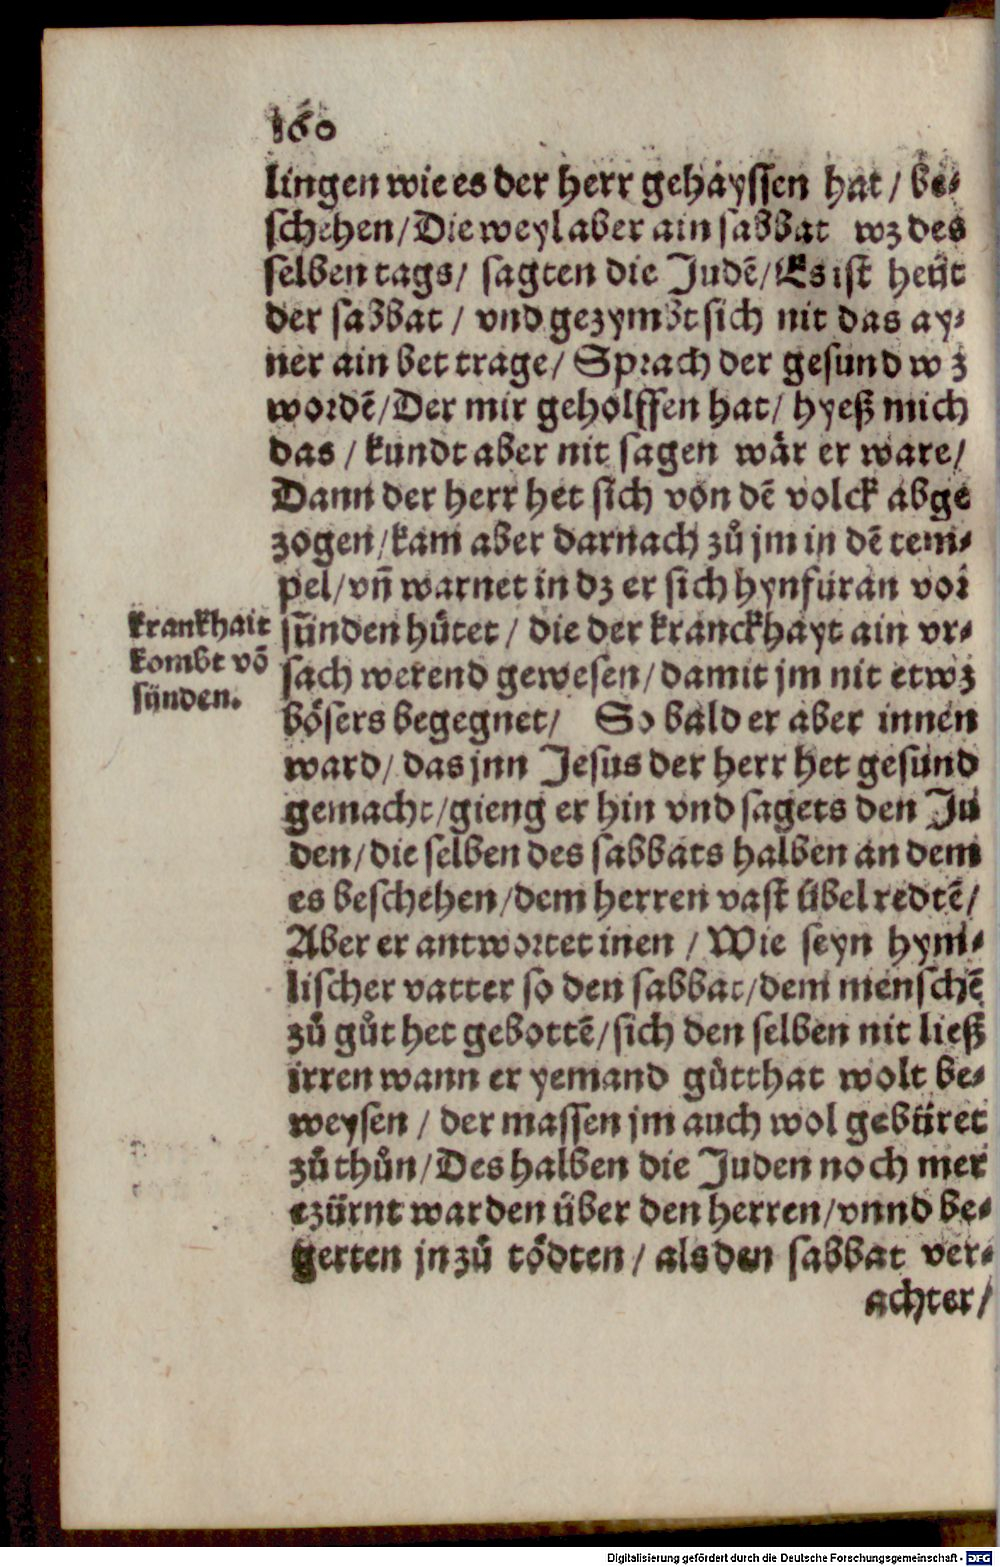 160
lingen wie es der herr gehayssen hat / be⸗
schehen / Die weyl aber ain sabbat wz des
selben tags / sagten die Judē / Es ist heüt
der sabbat / vnd gezymbt sich nit das ay⸗
ner ain bet trage / Sprach der gesund wz
wordē / Der mir geholffen hat / hyeß mich
das / kundt aber nit sagen wår er ware /
Dann der herr het sich von dē volck abge
zogen / kam aber darnach zů jm in dē tem⸗
pel / vñ warnet in dz er sich hynfüran vor
krankhait
kombt vō
sünden.
sünden hütet / die der kranckhayt ain vr⸗
sach werend gewesen / damit jm nit etwz
bösers begegnet / So bald er aber innen
ward / das jnn Jesus der herr het gesund
gemacht / gieng er hin vnd sagets den Ju
den / die selben des sabbats halben an dem
es beschehen / dem herren vast übel redtē /
Aber er antwortet inen / Wie seyn hym⸗
lischer vatter so den sabbat / dem menschē
zů gůt het gebottē / sich den selben nit ließ
irren wann er yemand gůtthat wolt be⸗
weysen / der massen jm auch wol gebüret
zů thůn / Des halben die Juden noch mer
ezürnt warden über den herren / vnnd be⸗
gerten jn zů tödten / als den sabbat ver⸗
achter /
Digitalisierung gefördert durch die Deutsche Forschungsgemeinschaft - DFG